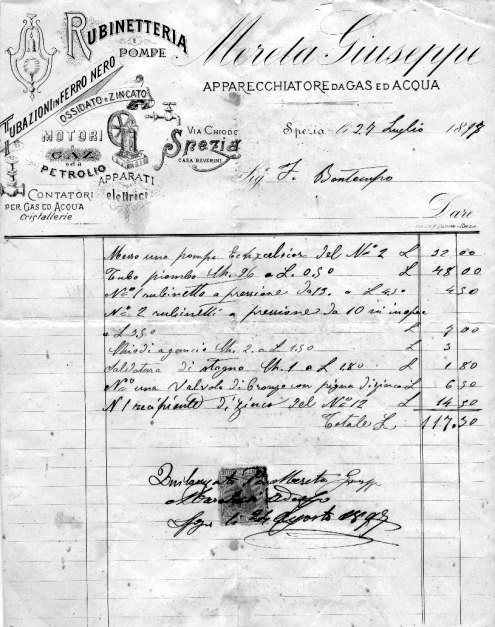 RUBINETTERIA
E
POMPE
TUBAZIONI IN FERRO NERO
OSSIDATO E ZINCATO
MOTORI
A
GAZ
ED A
PETROLIO
APPARATI
elettrici
CONTATORI
PER GAS ED ACQUA
Cristallerie
VIA CHIODO
Spezia
CASA BEVERINI
Mereta Giuseppe
APPARECCHIATORE DA GAS ED ACQUA
Spezia li 27 Luglio 1897
Sig. F. Bontempo
Dare
Messo una pompe Echxcelsior del No 2 L 32 00
Tubo piombo Ch. 96 a L. 0.50 L 48 00
No 1 rubinetto a pressione da 13. a L 4.50 4 50
No 2 rubinetti a pressione da 10
a L 3.50 L 7 00
Chiodi a gancio Ch. 2. a L 1.50 L 3
Saldatura di stagno Ch. 1 a L 1.80 L 1 80
No una Valvola di Bronzo con pigna di zinco L 6 50
N 1 recipiente di zinco del No 12 L 14 50
Totale L 117.30
Mereta
Adolfo
li 24 Agosto 1897